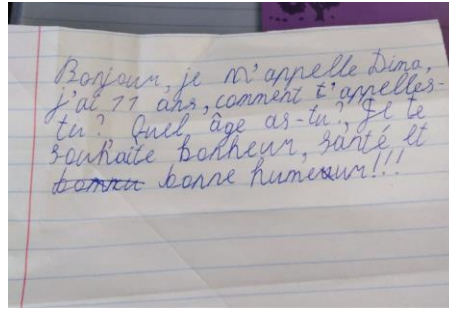 Bonjour, je m'appelle Dima,
j'ai 11 ans, comment t'appelles-
tu? Quel âge as-tu?, Je te
souhaite bonheur, santé et
bonne humeur!!!